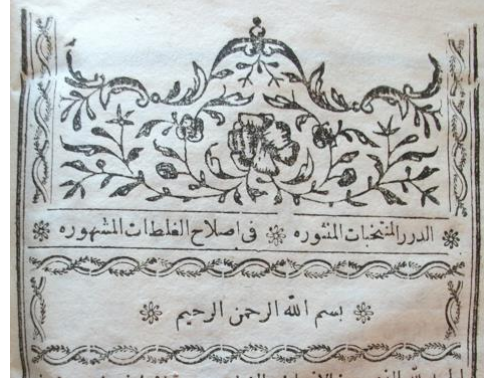 الدرر المنتخبات المنثوره في اصلاح الغلطات المشهوره
بسم الله الرحمن الرحيم